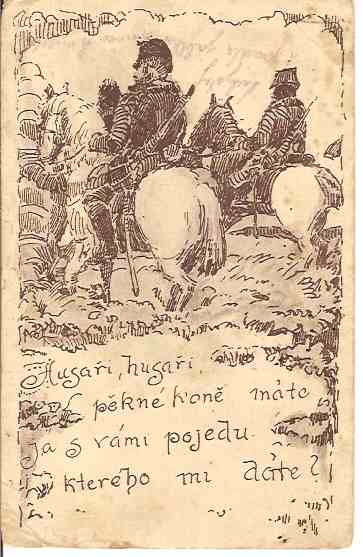 Husaři, husaři,
pěkne koně máte
ja s vámi pojedu.
kterého mi dáte?